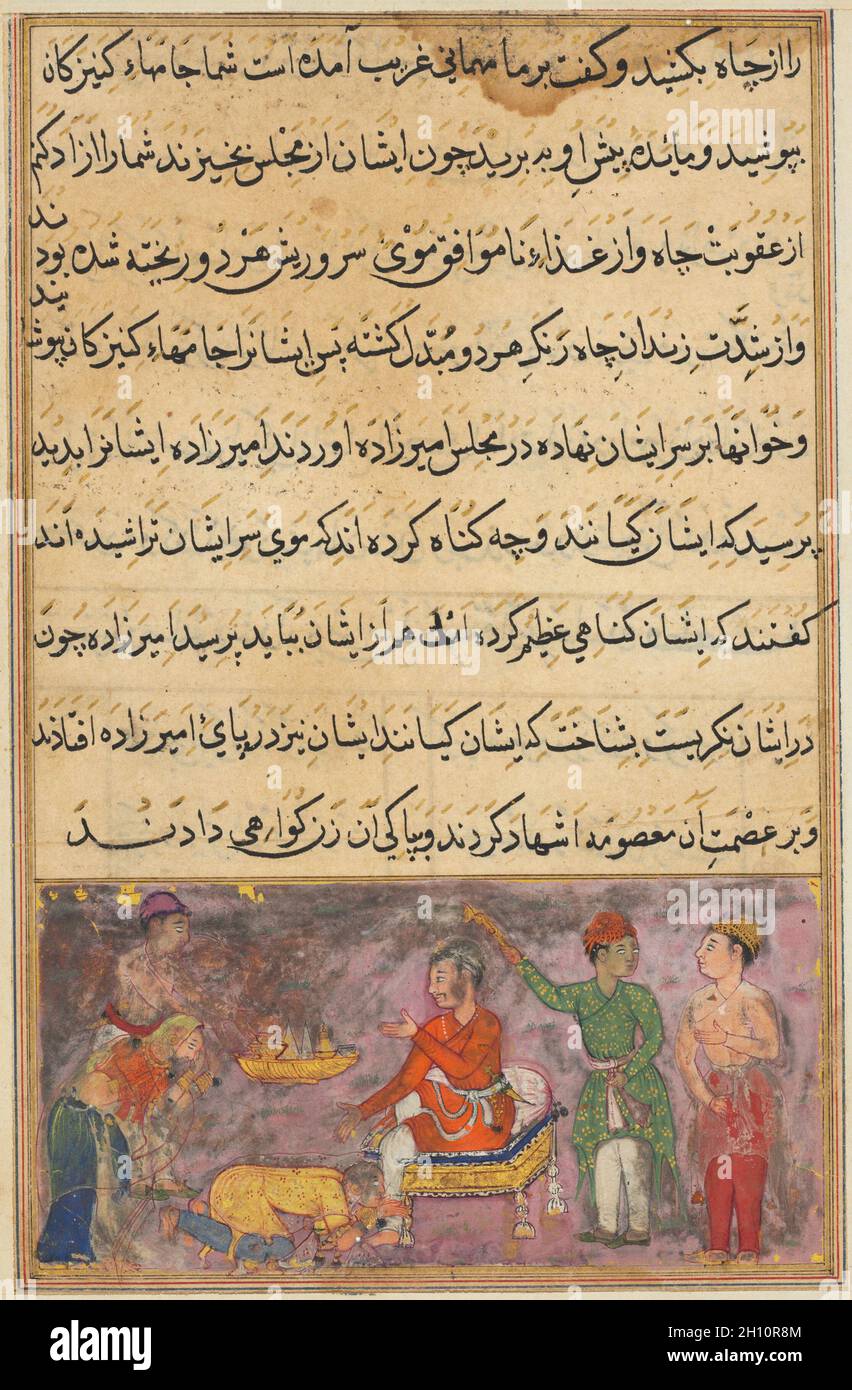 را از چاه بکشید و گفت بر ما مهمانی غریب آمده است شما جامهاء کنیزکان
بپوشید و مائده پیش او به برید چون ایشان از مجلس بخیزند شما را ازاد کنم
از عقوبت چاه و از غذاء ناموافق موی سر و ریش هر دو ریخته شده بود
و از شدت زندان چاه رنک هر دو مبدل کشته پس ایشانرا جامهاء کنیزکان پوشا
نیدند
و خوانها بر سر ایشان نهاده در مجلس امیرزاده اوردند امیرزاده ایشانرا بدید
پرسید که ایشان کیانند و چه کناه کرده اند که موی سر ایشان تراشیده اند
کفتند که ایشان کناهی عظیم کرده اند هم از ایشان بباید پرسید امیرزاده چون
در ایشان نکریست بشناخت که ایشان کیانند ایشان نیز در پای امیرزاده افتادند
و بر عصمت آن معصومه اشهاد کردند و بپاکی آن زن کواهی دادند
alamy
alamy
Image ID: 2H10R8M
www.alamy.com